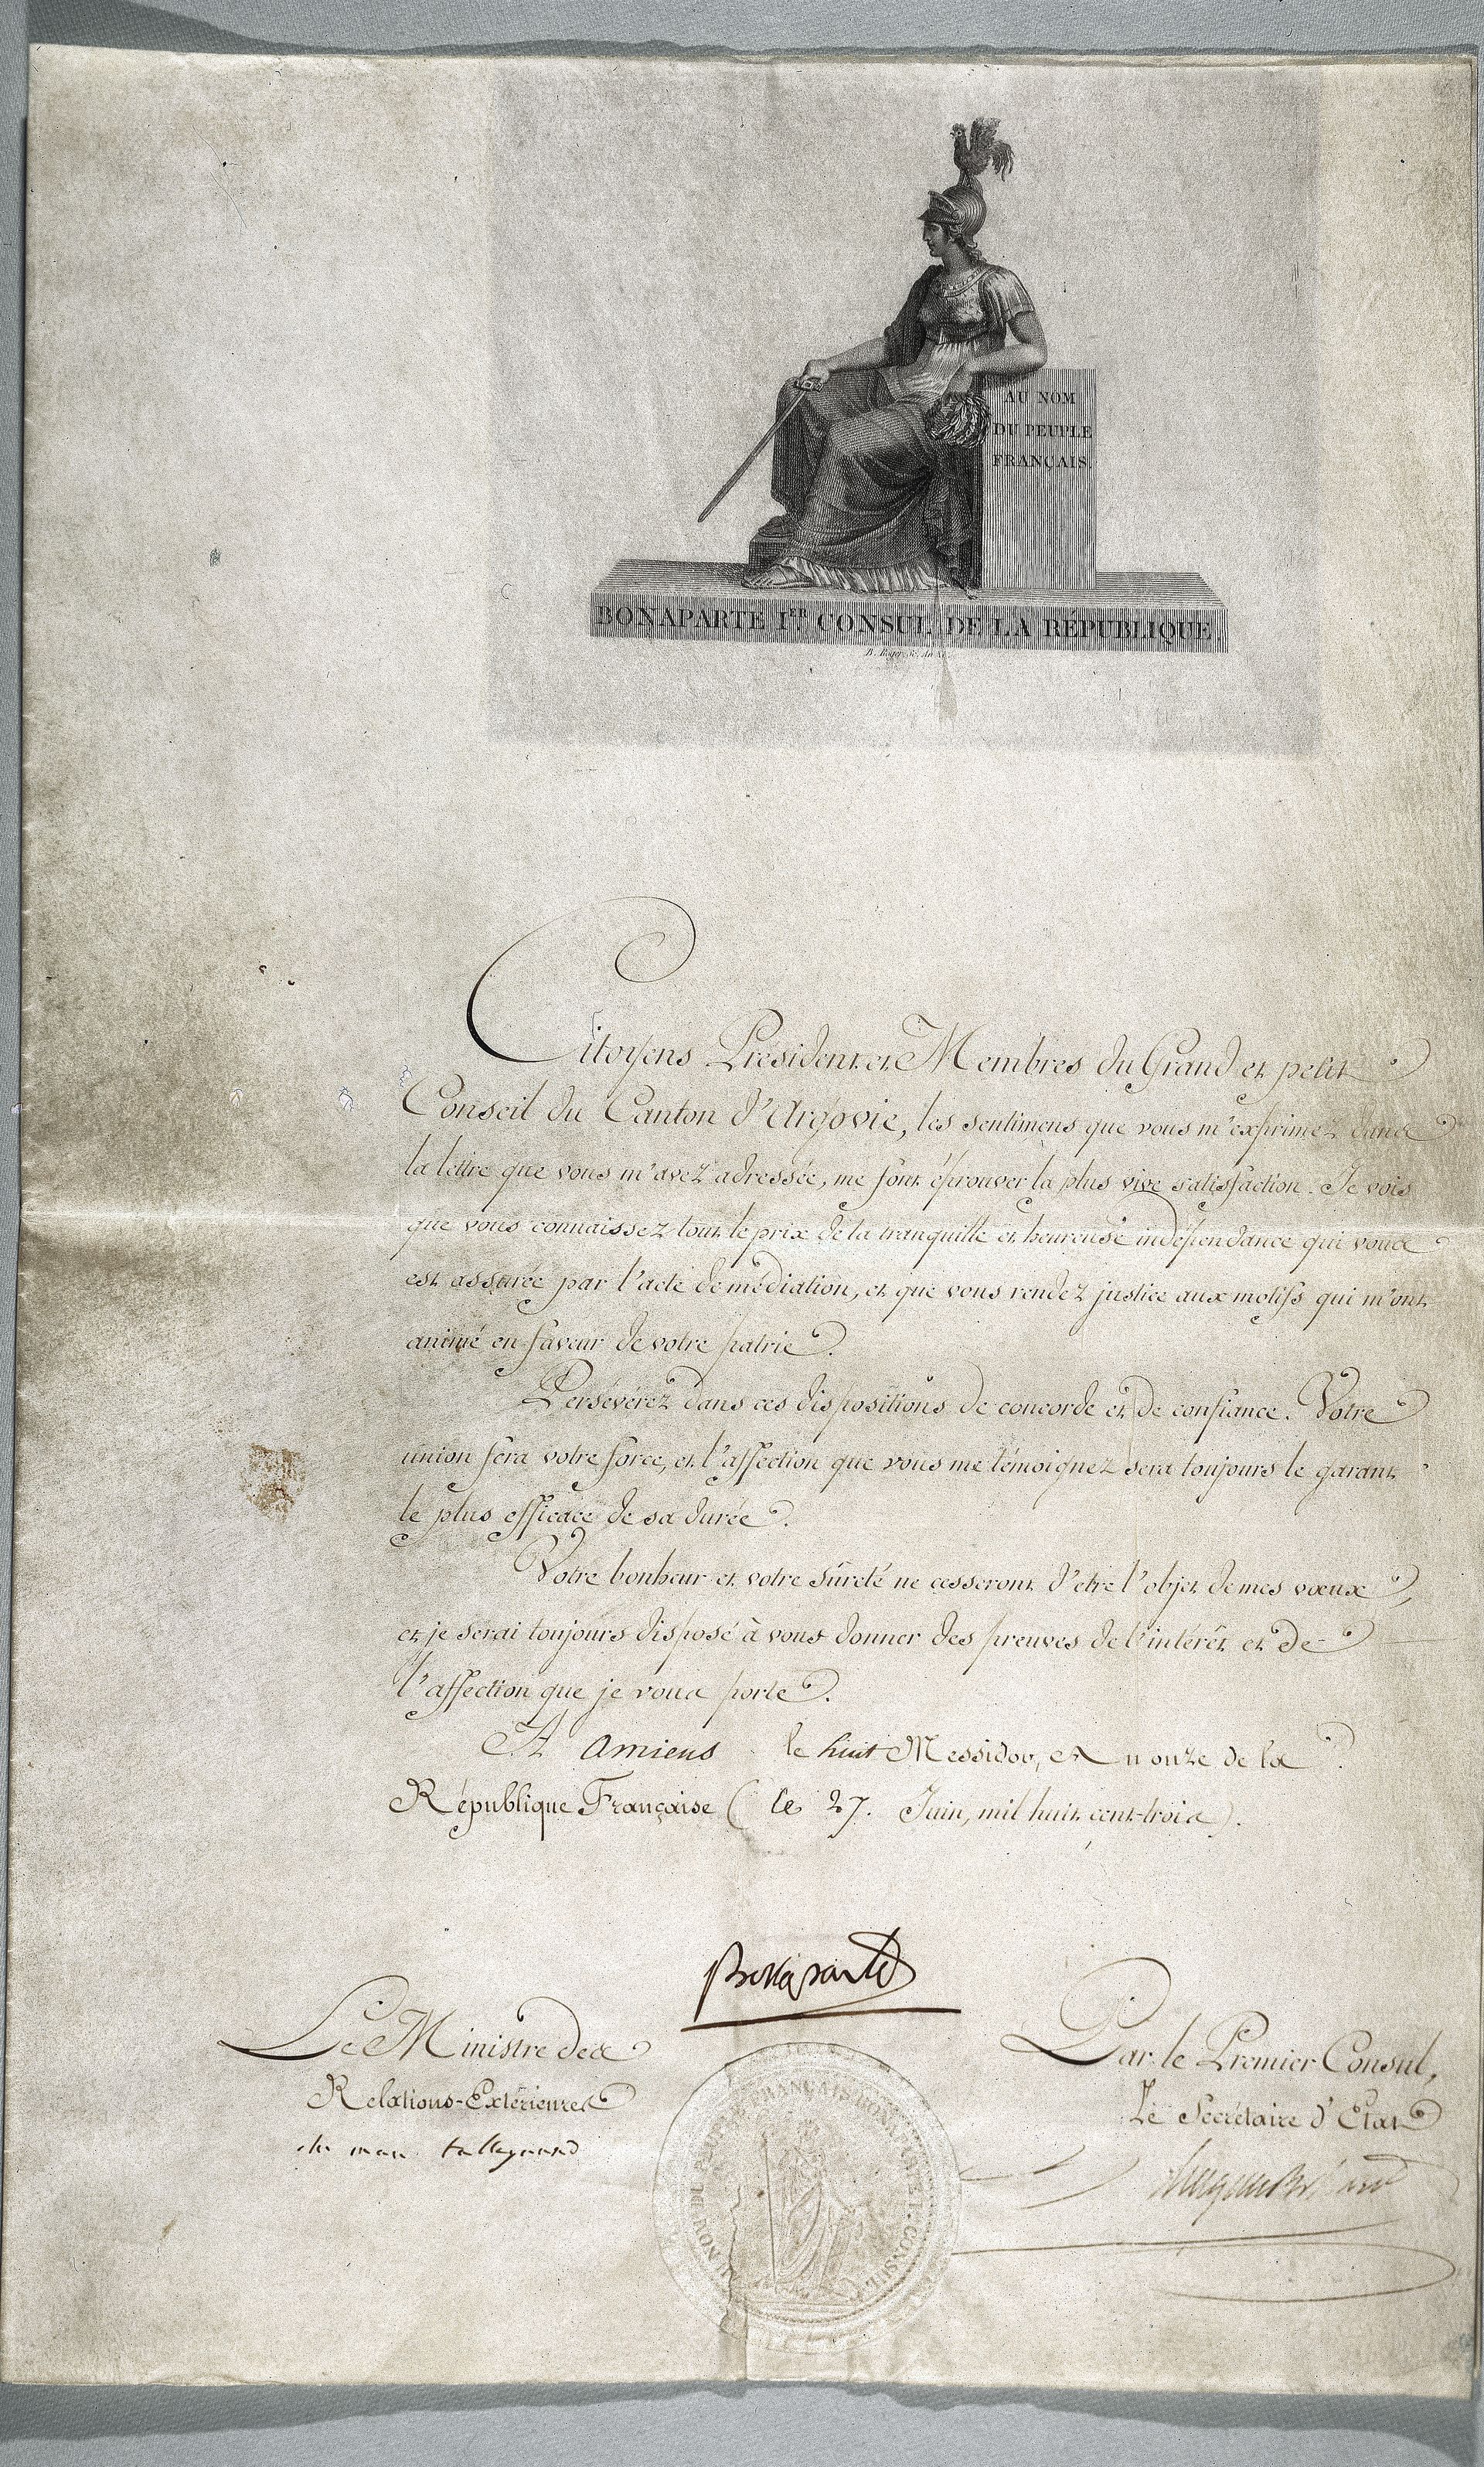 AU NOM
DU PEUPLE
FRANÇAIS.
BONAPARTE I.ER CONSUL DE LA RÉPUBLIQUE
B. Roger Sc. An XI.
Citoyens Président et Membres du Grand et petit
Conseil du Canton d'Argovie, les sentimens que vous m'exprimez dans
la lettre que vous m'avez adressée, me font éprouver la plus vive satisfaction. Je vois
que vous connaissez tout le prix de la tranquille et heureuse indépendance qui vous
est assurée par l'acte de médiation, et que vous rendez justice aux motifs qui m'ont
animé en faveur de votre patrie.
Persévérez dans ces dispositions de concorde et de confiance. Votre
union fera votre force, et l'affection que vous me témoignez sera toujours le garant
le plus efficace de sa durée.
Votre bonheur et votre sûreté ne cesseront d'etre l'objet de mes vœux,
et je serai toujours disposé à vous donner des preuves de l'intérêt et de
l'affection que je vous porte.
A Amiens le huit Messidor, An onze de la
République Française (le 27. Juin, mil huit cent-trois).
Bonaparte
Le Ministre des
Relations-Extérieures
ch mau talleyrand
Par le Premier Consul,
Le Secrétaire d'Etat
Hugues B. Maret
AU NOM DU PEUPLE FRANÇAIS BONAPARTE 1.er CONSUL